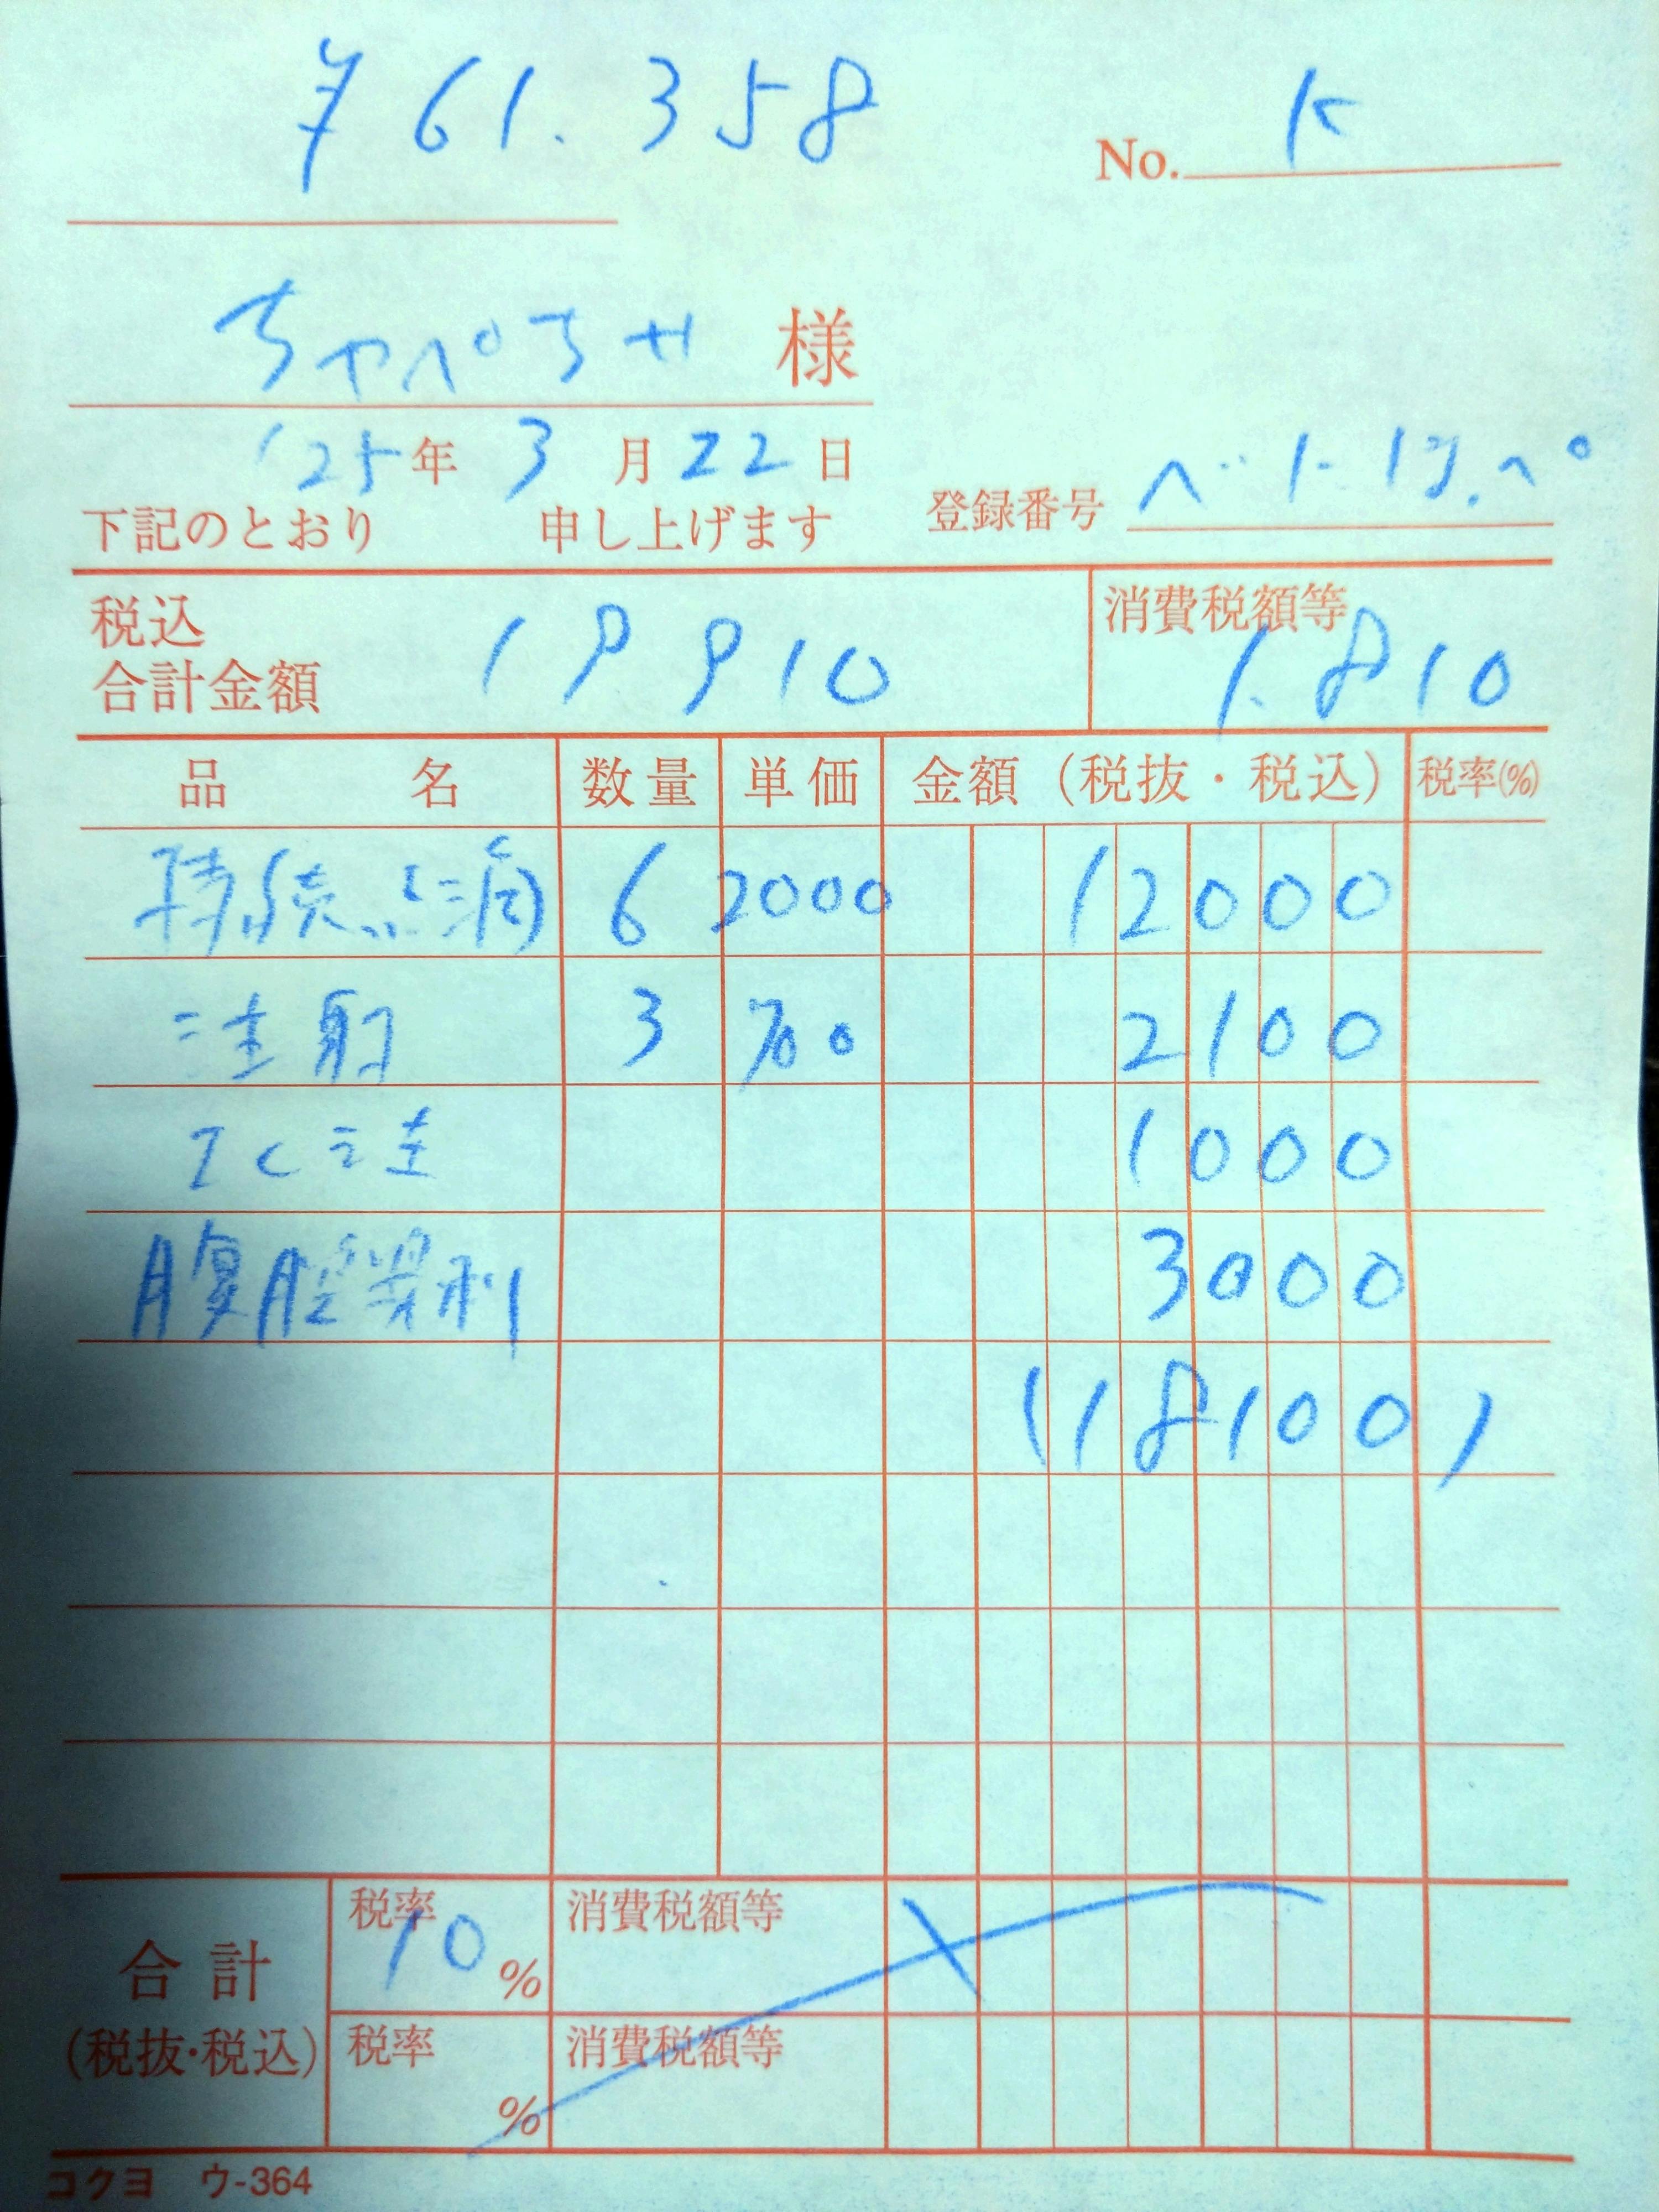 ¥61.358
No. K
ちゃぺちゃ 様
'25年 3月22日
下記のとおり 申し上げます 登録番号
税込合計金額 19910 消費税額等 1.810
品名 数量 単価 金額（税抜・税込） 税率(%)
持続点滴 6 2000 12000
注射 3 700 2100
IC注 1000
腹腔穿刺 3000
(18100)
合計(税抜・税込) 税率 10% 消費税額等
税率 % 消費税額等
コクヨ ウ-364